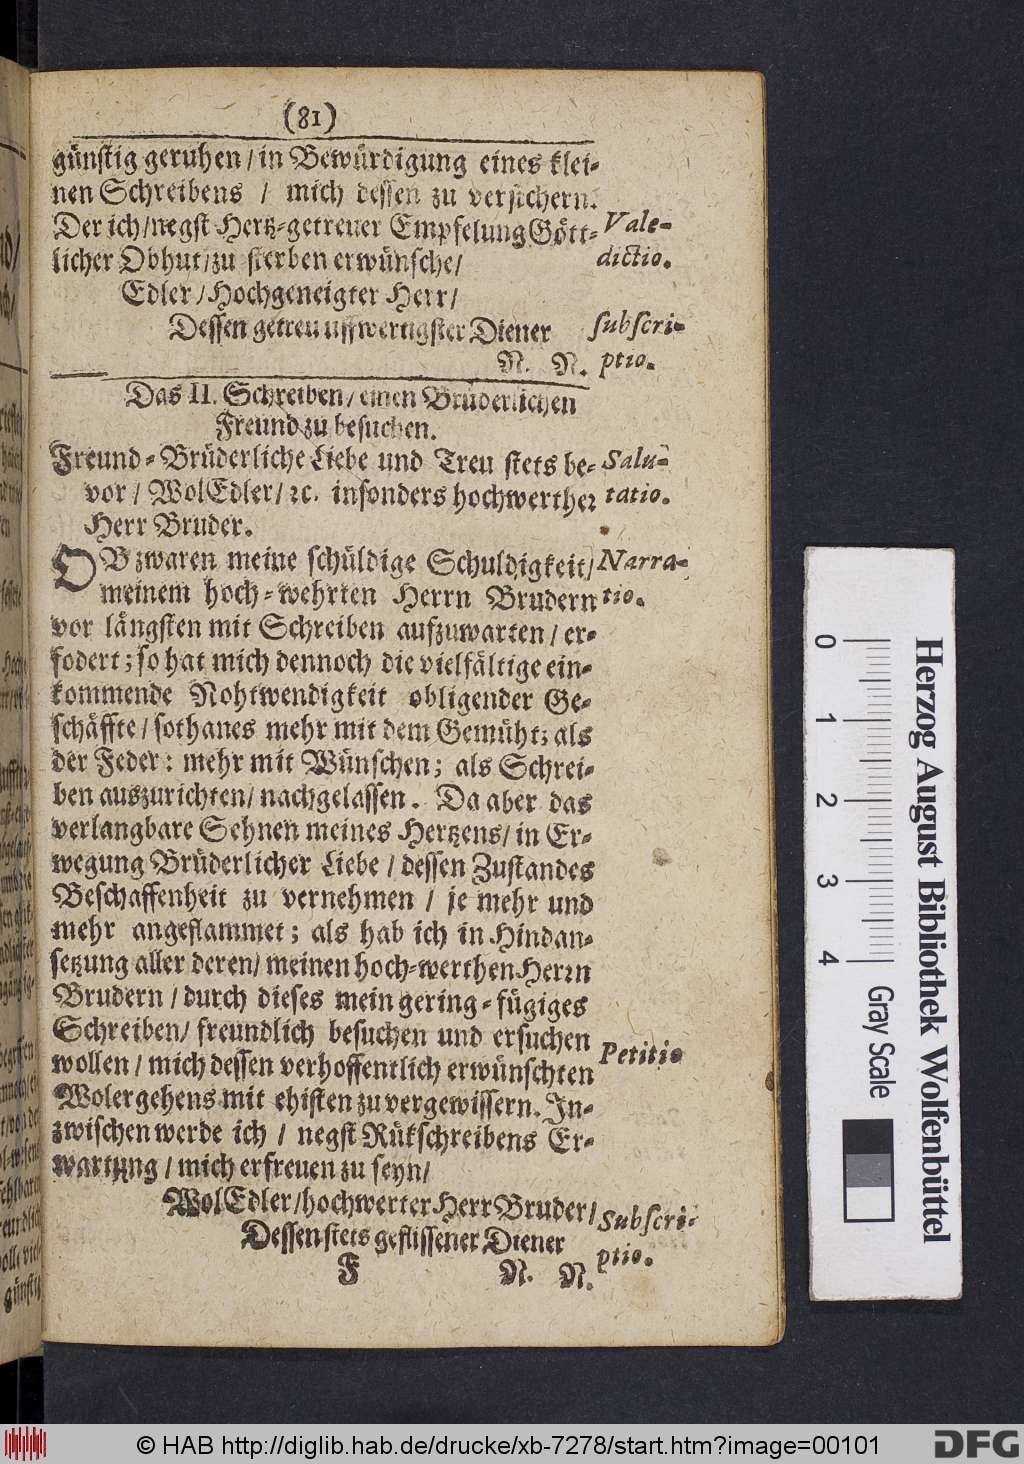 (81)
günstig geruhen / in Bewürdigung eines klei-
nen Schreibens / mich dessen zu versichern.
Der ich / negst Hertz-getreuer Empfelung Gött-
Vale-
licher Obhut / zu sterben erwünsche /
dictio.
Edler / Hochgeneigter Herr /
Dessen getreu uffwertigster Diener
subscri-
N. N.
ptio.
Das II. Schreiben / einen Brüderlichen
Freund zu besuchen.
Freund-Brüderliche Liebe und Treu stets be-
Salu-
vor / WolEdler / ꝛc. insonders hochwerther
tatio.
Herr Bruder.
OB zwaren meine schüldige Schuldigkeit /
Narra-
meinem hoch-wehrten Herrn Brudern
tio.
vor längsten mit Schreiben aufzuwarten / er-
fodert; so hat mich dennoch die vielfältige ein-
kommende Nohtwendigkeit obligender Ge-
schäffte / sothanes mehr mit dem Gemüht; als
der Feder: mehr mit Wünschen; als Schrei-
ben auszurichten / nachgelassen. Da aber das
verlangbare Sehnen meines Hertzens / in Er-
wegung Brüderlicher Liebe / dessen Zustandes
Beschaffenheit zu vernehmen / je mehr und
mehr angeflammet; als hab ich in Hindan-
setzung aller deren / meinen hoch-werthen Herrn
Brudern / durch dieses mein gering-fügiges
Schreiben / freundlich besuchen und ersuchen
wollen / mich dessen verhoffentlich erwünschten
Petitio
Wolergehens mit ehisten zu vergewissern. In-
zwischen werde ich / negst Rükschreibens Er-
wartung / mich erfreuen zu seyn /
WolEdler / hochwerter Herr Bruder /
Subscri-
Dessen stets geflissener Diener
ptio.
F N. N.
0 1 2 3 4
Gray Scale
Herzog August Bibliothek Wolfenbüttel
© HAB http://diglib.hab.de/drucke/xb-7278/start.htm?image=00101
DFG